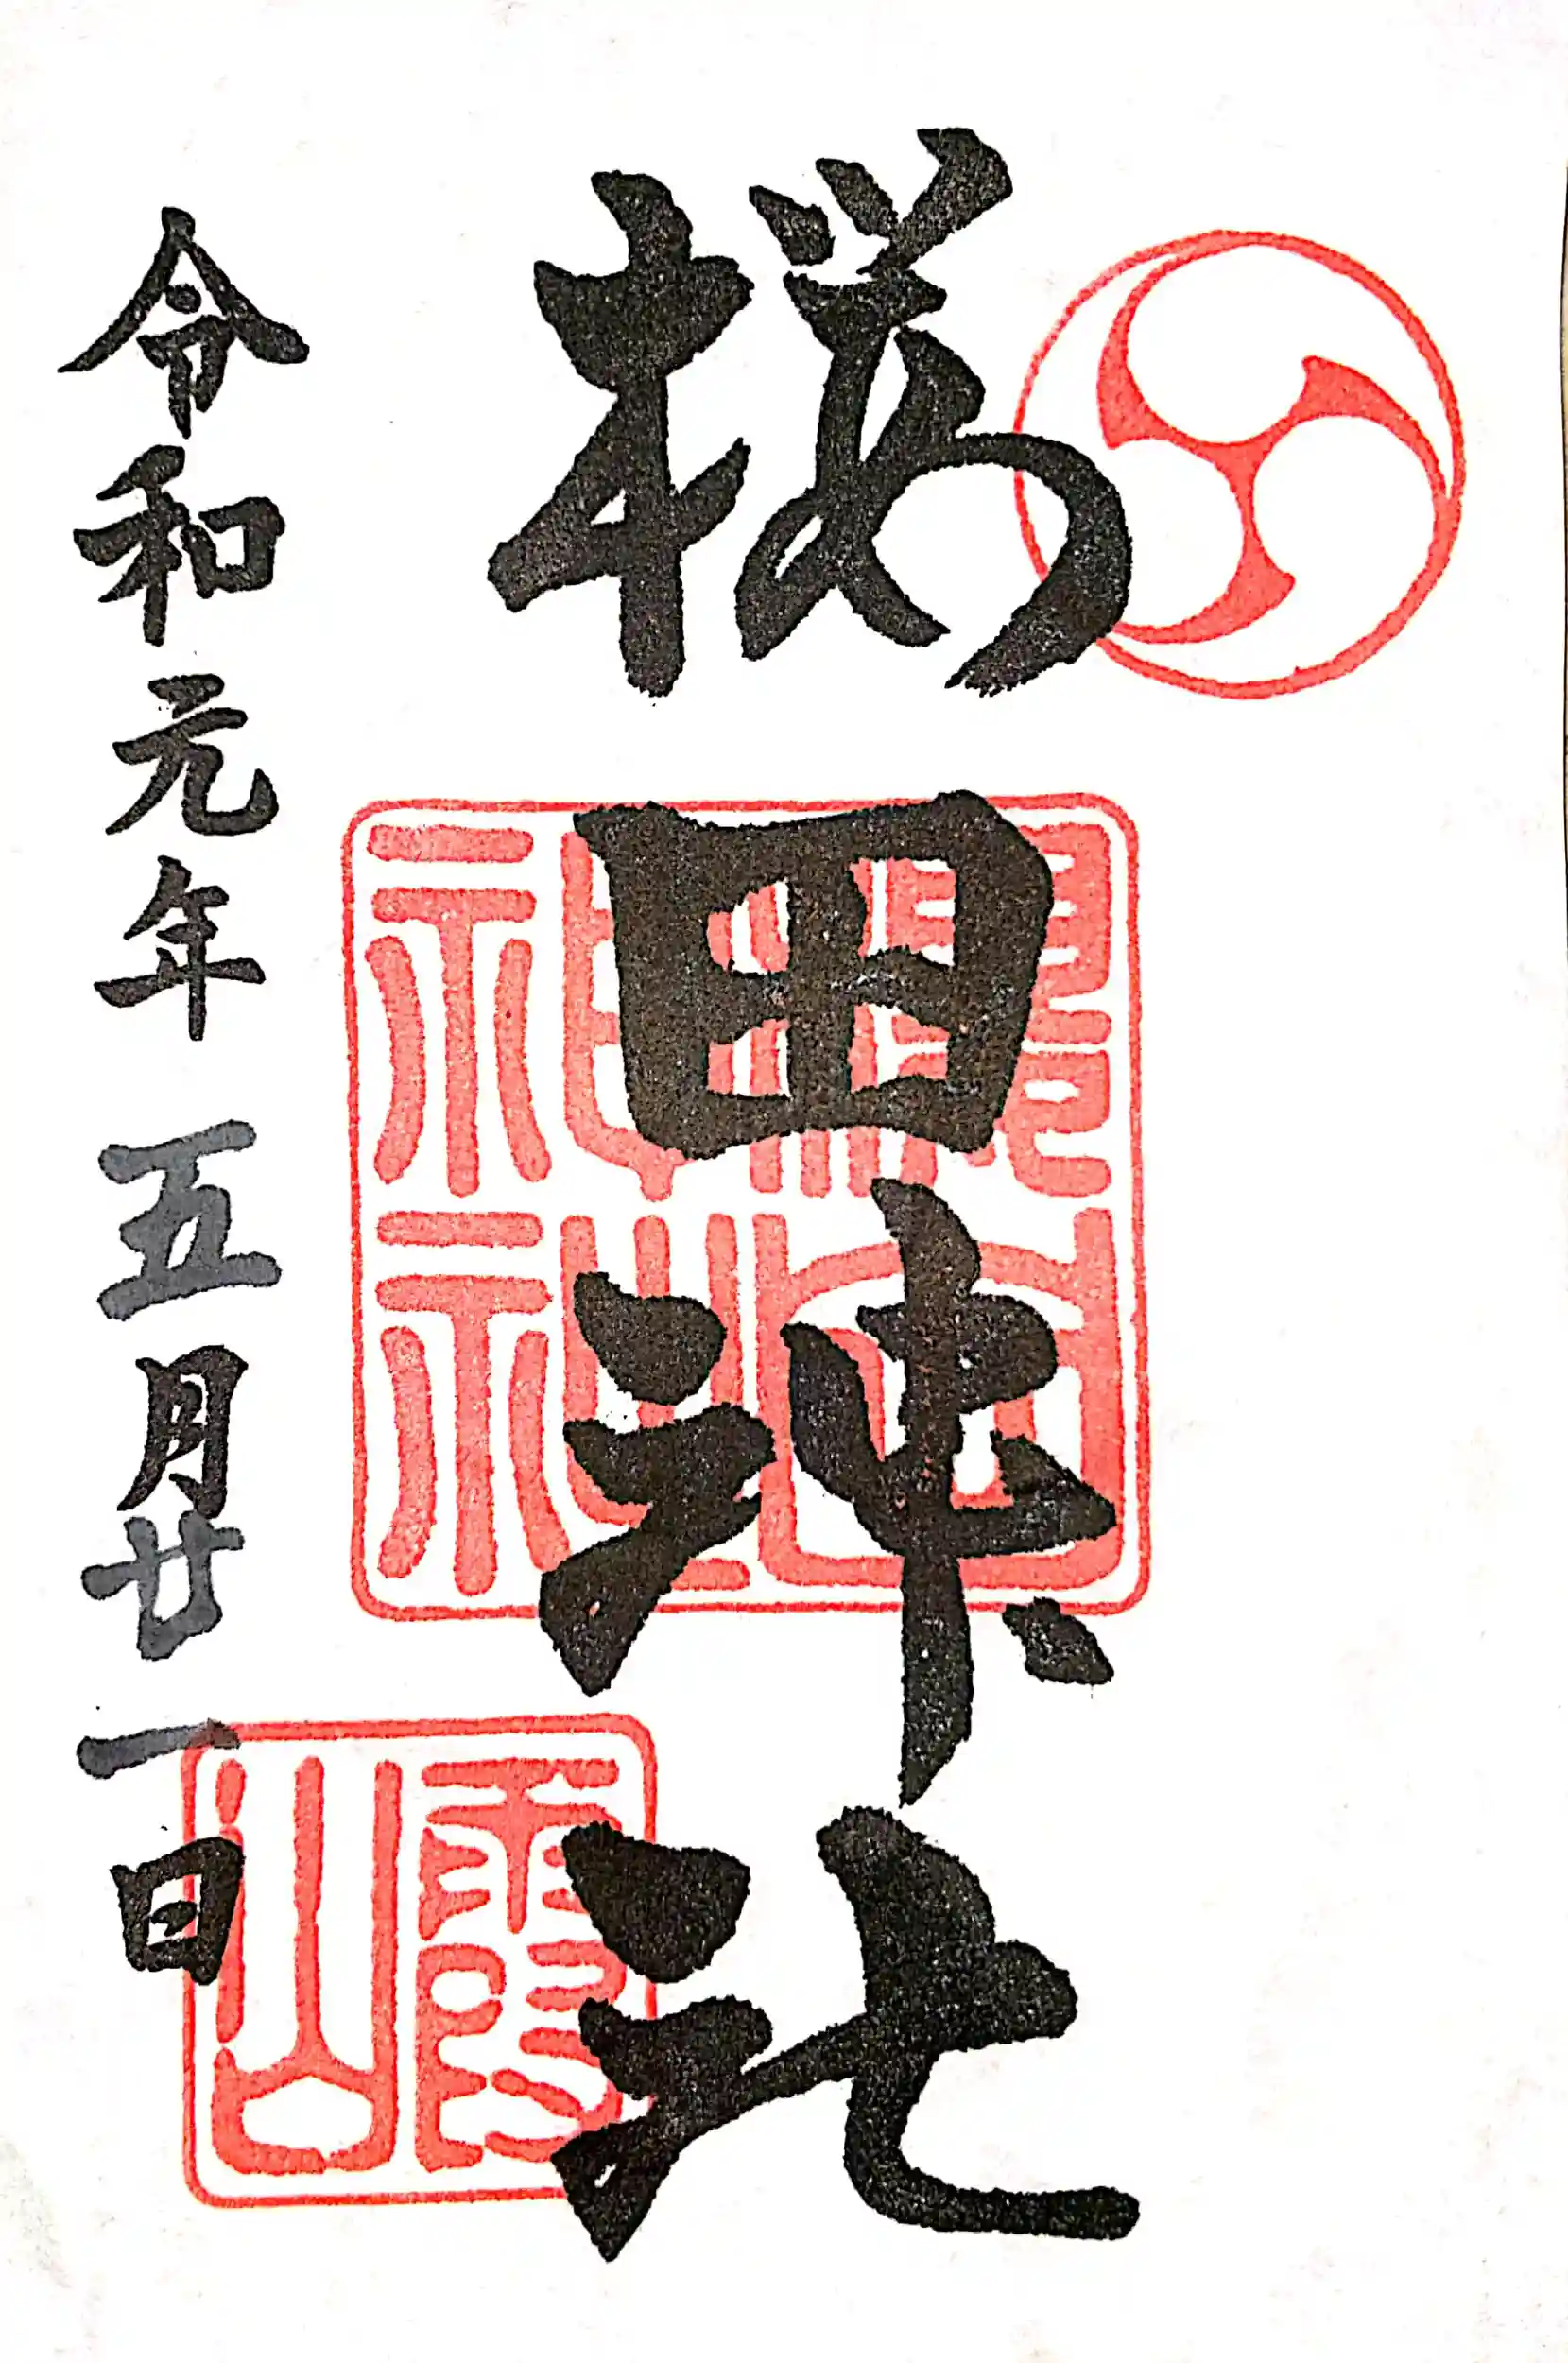 桜田神社
令和元年 五月廿一日
櫻田神社
霞山